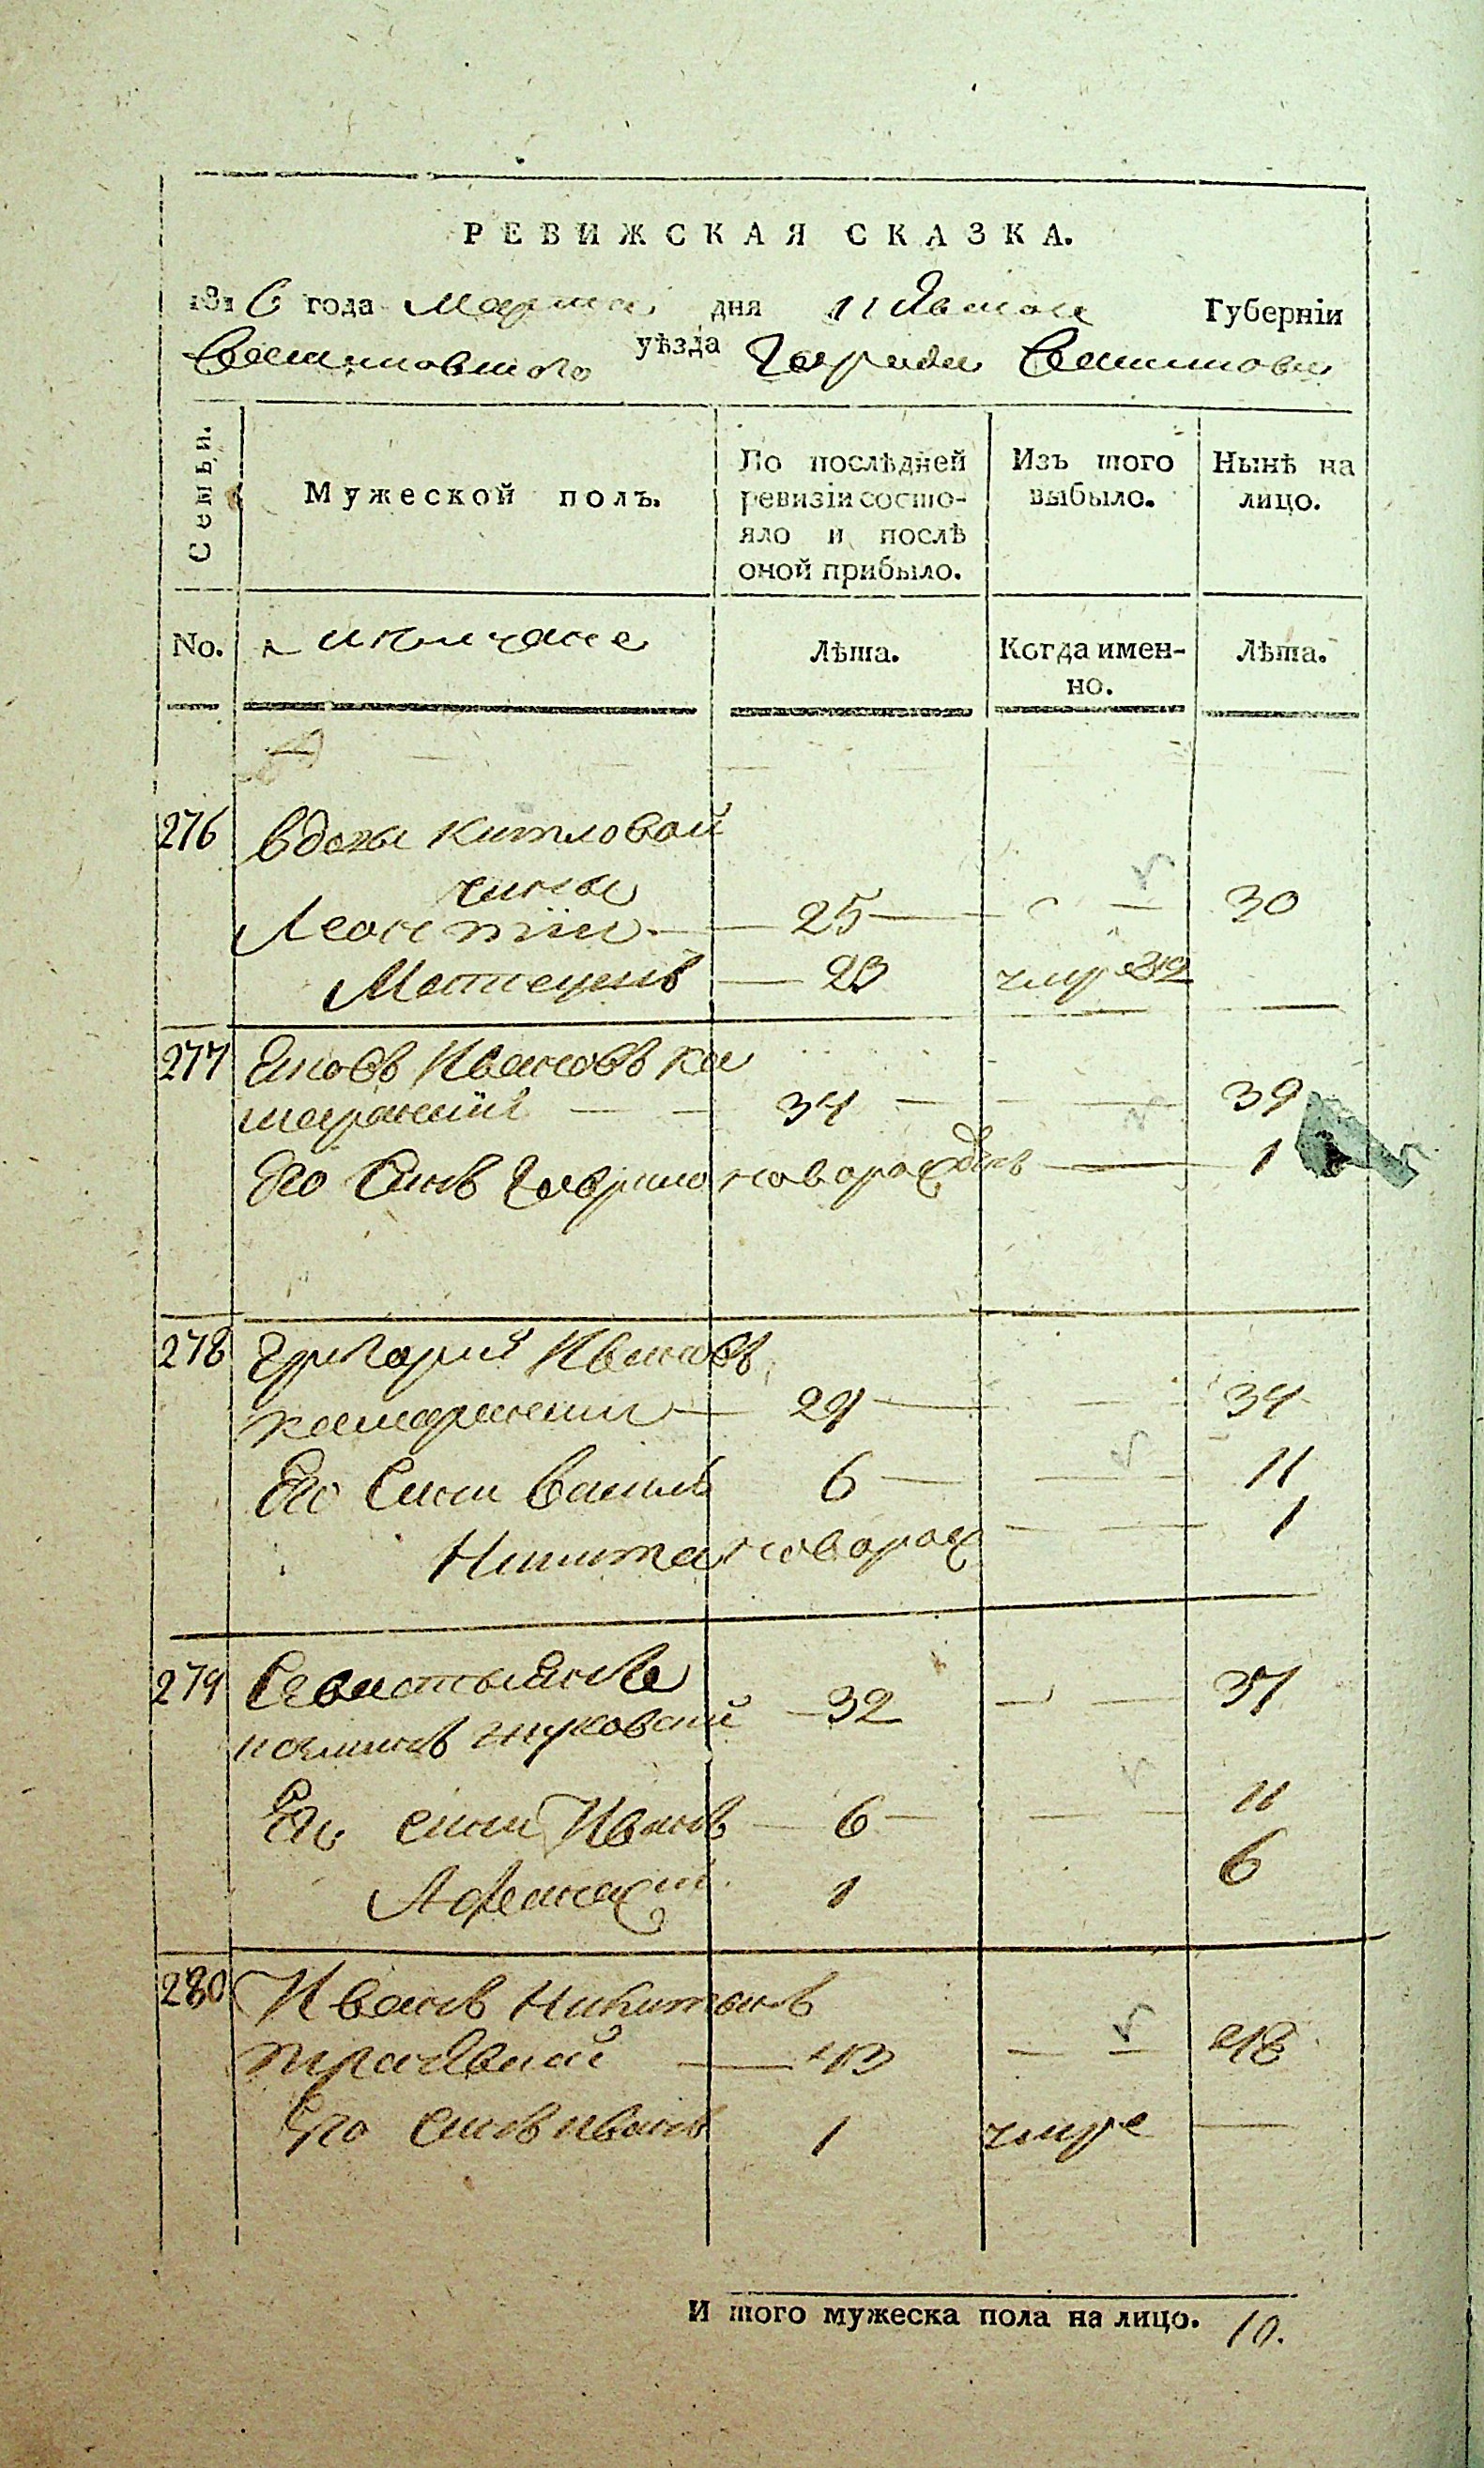 РЕВИЖСКАЯ СКАЗКА.
1816 года Марта дня Губерніи
уѣзда Города
Семьи. Мужеской полъ. По послѣдней ревизіи состо- яло и послѣ оной прибыло. Изъ того выбыло. Нынѣ на лицо.
No. Лѣта. Когда имен- но. Лѣта.
276 вдовы Китловой
сины
Леонтіи 25 30
Матвей 23 умре 812
277 Яковъ Ивановъ Ка
марнский 34 39
Его Синъ Гаврило новорожденъ 1
278 Григорий Ивановъ
камарнский 29 34
Его Сини Василь 6 11
Никита новорож 1
279 Севастьянъ
жуковский 32 37
Его сини Иванъ 6 11
Афанасий 1 6
280 Иванъ Никитинъ
43 48
Его синъ иванъ 1 умре
Итого мужеска пола на лицо. 10.